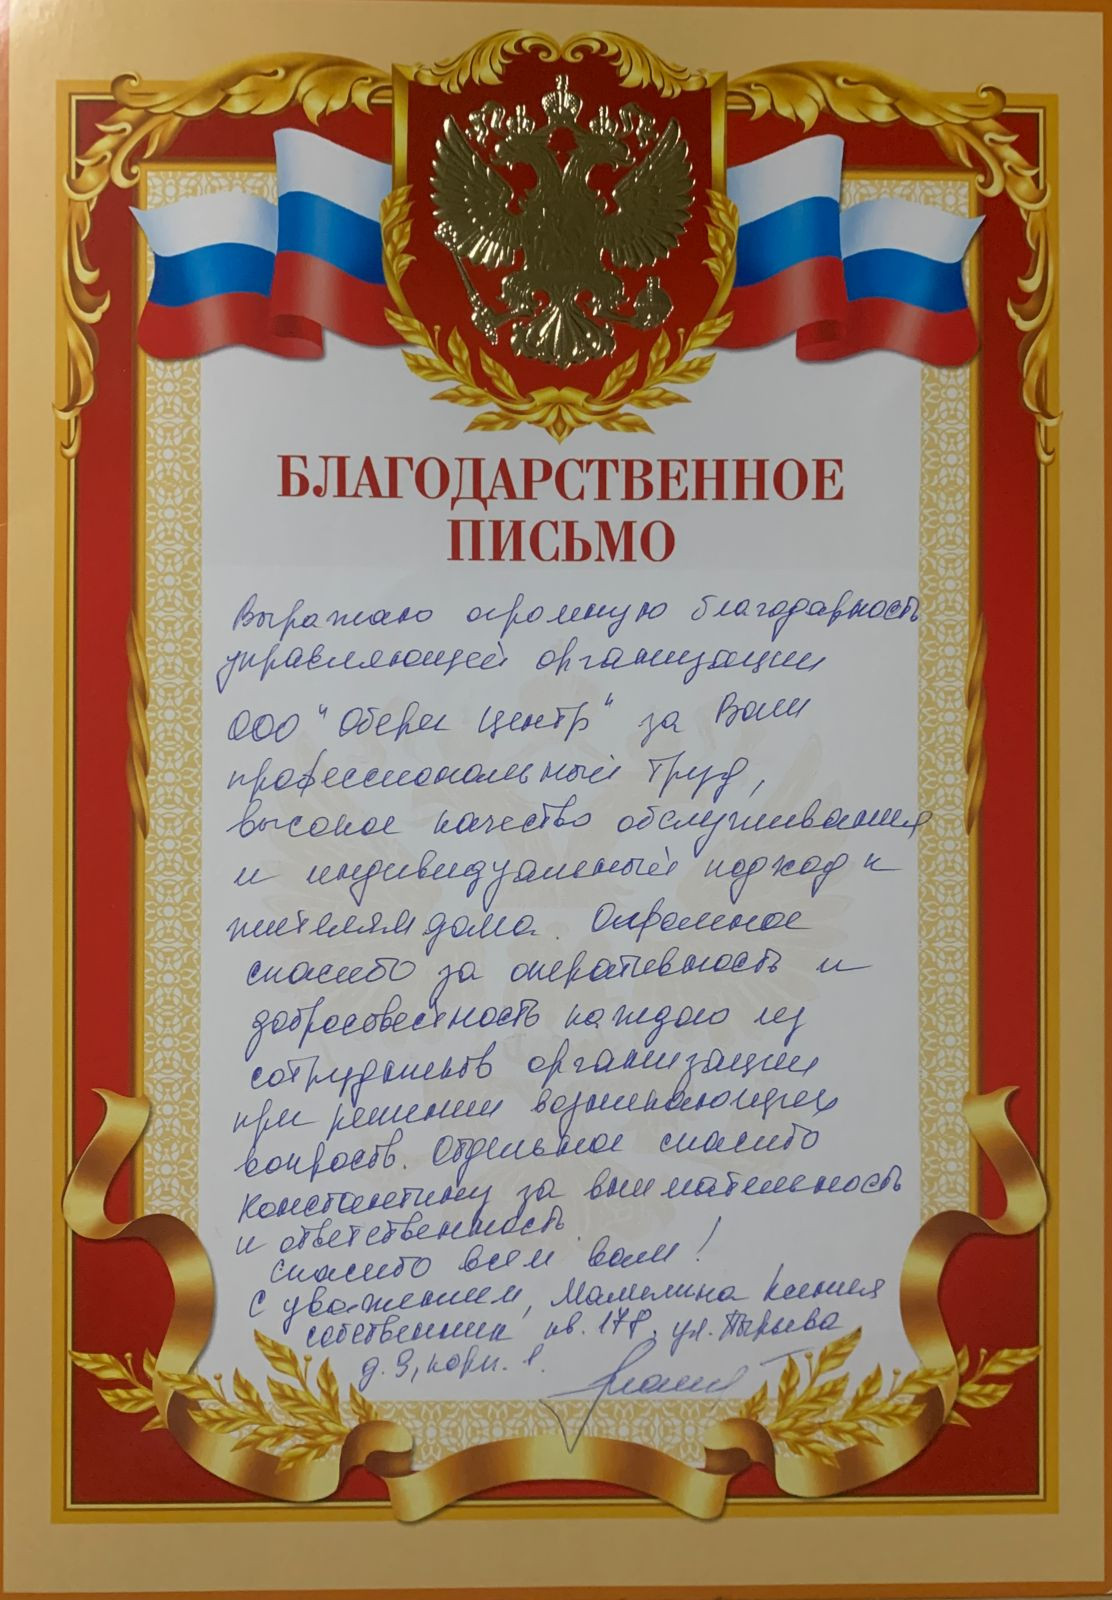 БЛАГОДАРСТВЕННОЕ
ПИСЬМО
Выражаю огромную благодарность
управляющей организации
ООО "Сбери Центр" за Ваш
профессиональный труд,
высокое качество обслуживания
и индивидуальный подход к
жителям дома. Огромное
спасибо за оперативность и
добросовестность каждого из
сотрудников организации
при решении возникающих
вопросов. Отдельное спасибо
Константину за внимательность
и ответственность.
Спасибо всем вам!
С уважением, Мамлина Ксения
собственник кв. 178, ул. Пырьева
д. 9, корп. 1.